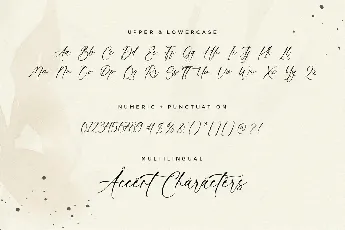 UPPER & LOWERCASE
Aa Bb Cc Dd Ee Ff Gg Hh Ii Jj Kk Ll
Mm Nn Oo Pp Qq Rr Ss Tt Uu Vv Ww Xx Yy Zz
NUMERIC + PUNCTUATION
0123456789 # $ % & ( ) * [ ] { } @ ? !
MULTILINGUAL
Accent Characters